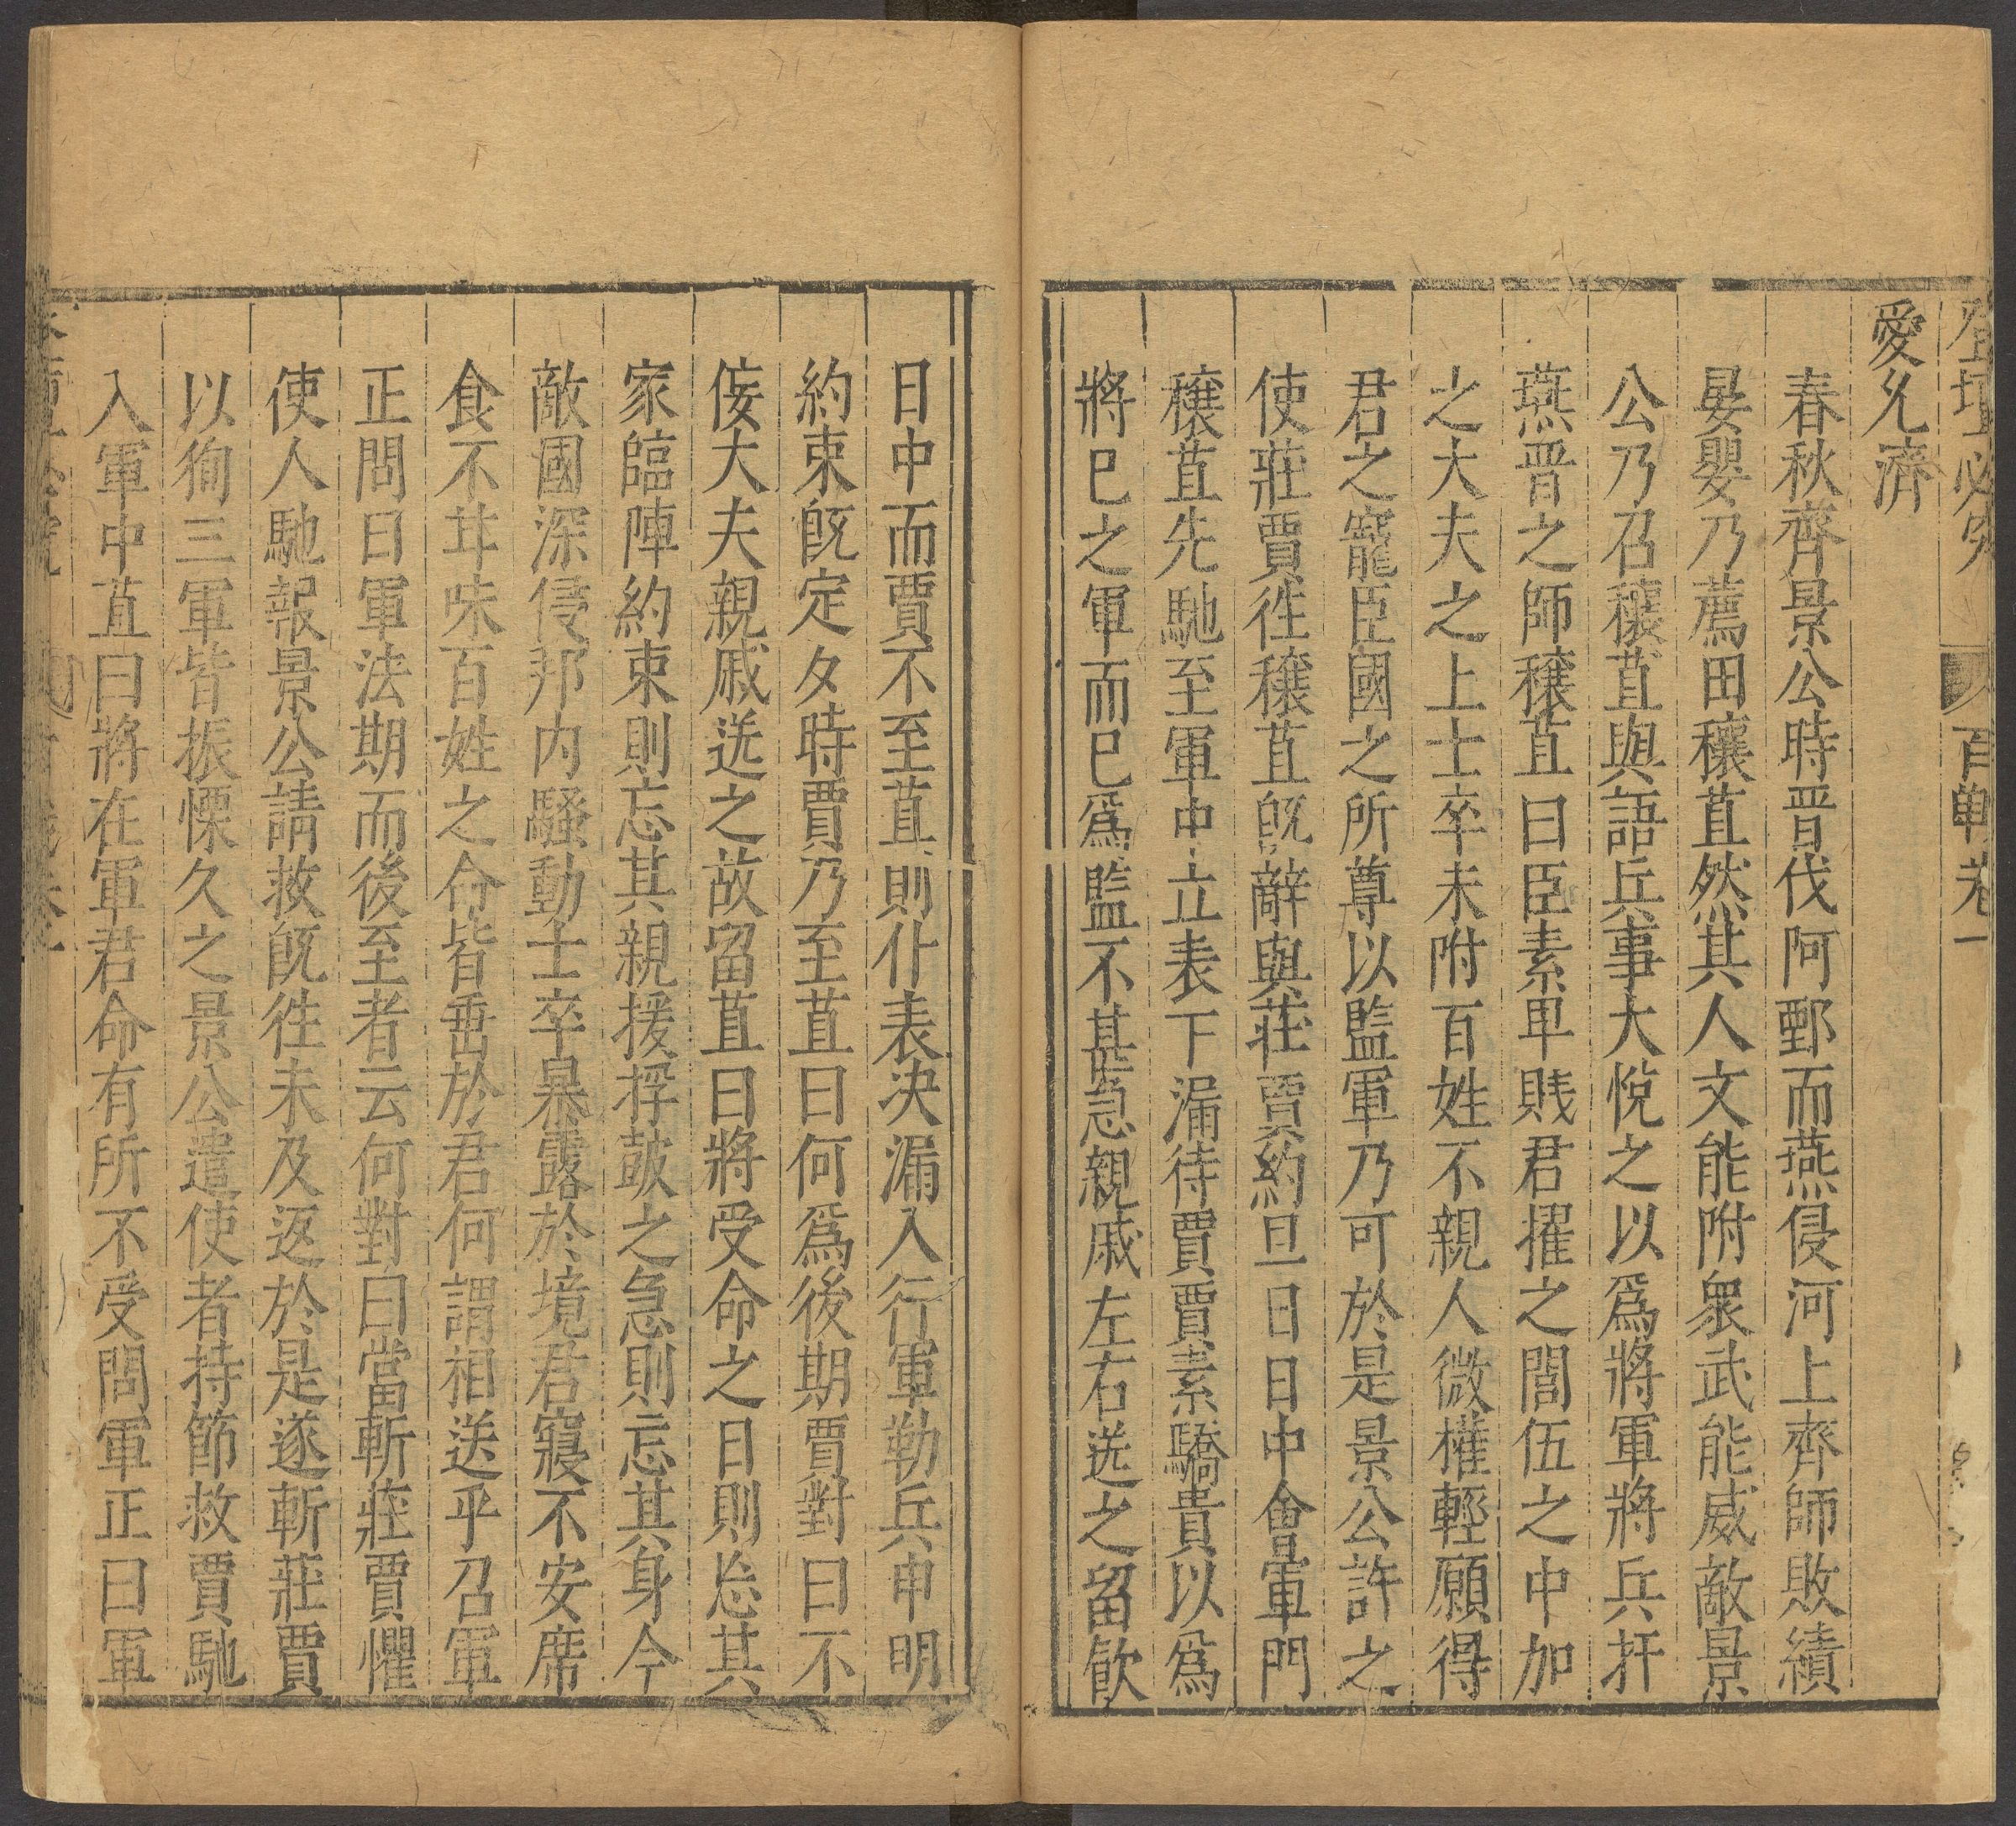 登壇必究 百戰卷一
愛久濟
春秋齊景公時晋伐阿鄄而燕侵河上齊師敗績
晏嬰乃薦田穰苴然其人文能附衆武能威敵景
公乃召穰苴與語兵事大悅之以爲將軍將兵扞
燕晋之師穰苴曰臣素卑賎君擢之閭伍之中加
之大夫之上士卒未附百姓不親人微權輕願得
君之寵臣國之所尊以監軍乃可於是景公許之
使莊賈徃穰苴旣辭與莊賈約旦日日中會軍門
穰苴先馳至軍中立表下漏待賈賈素驕貴以爲
將巳之軍而巳爲監不甚急親戚左右送之留飮
日中而賈不至苴則仆表决漏入行軍勒兵申明
約束旣定夕時賈乃至苴曰何爲後期賈對曰不
侫大夫親戚送之故留苴曰將受命之日則忘其
家臨陣約束則忘其親援桴鼓之急則忘其身今
敵國深侵邦内騷動士卒暴露於境君寢不安席
食不甘味百姓之命皆垂於君何謂相送乎召軍
正問曰軍法期而後至者云何對曰當斬莊賈懼
使人馳報景公請救旣徃未及返於是遂斬莊賈
以徇三軍皆振慄久之景公遣使者持節救賈馳
入軍中苴曰將在軍君命有所不受問軍正曰軍